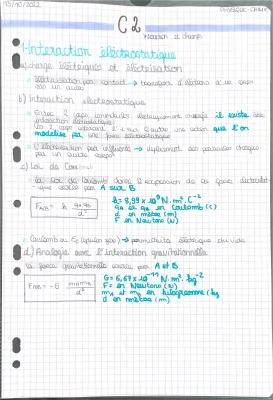 13/10/2022
PHYSIQUE-CHIMIE
C2
Interaction et champ
I-Interaction électrostatique
a) charge électriques et électrisation
→ électrisation par contact → transfert d'électrons d'un corps
vers un autre
b) Interaction électrostatique
→ Entre 2 corps immobiles électriquement chargés il existe une
interaction électrostatique
Les 2 corps exercent l'un sur l'autre une action que l'on
modélise par une force électrostatique
→ L'électrisation par influence → déplacement des particules chargées
par un autre corps
c) Loi de Coulomb
→ La loi de Coulomb donne l'expression de la force électrostati-
-que exercée par A sur B
FA/B = k qA qB / d²
k = 8,99 x 10⁹ N.m².C⁻²
qA et qB en Coulomb (C)
d en mètre (m)
F en Newton (N)
d) Analogie avec l'interaction gravitationnelle
la force gravitationnelle exercée par A et B
FA/B = -G mA mB / d²
G = 6,67 x 10⁻¹¹ N.m².kg⁻²
F = en Newton (N)
mA et mB en kilogramme (kg)
d en mètre (m)